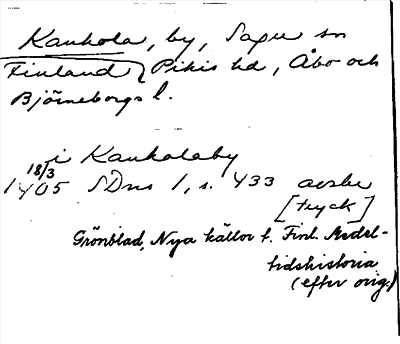 Kankola, by, Sagu sn
Finland Pikis hd, Åbo och
Björneborgs l.
i Kankolaby
18/3
1405 SDns 1, s. 433 avskr
[tryck]
Grönblad, Nya källor t. Finl. Medel-
tidshistoria
(efter orig.)